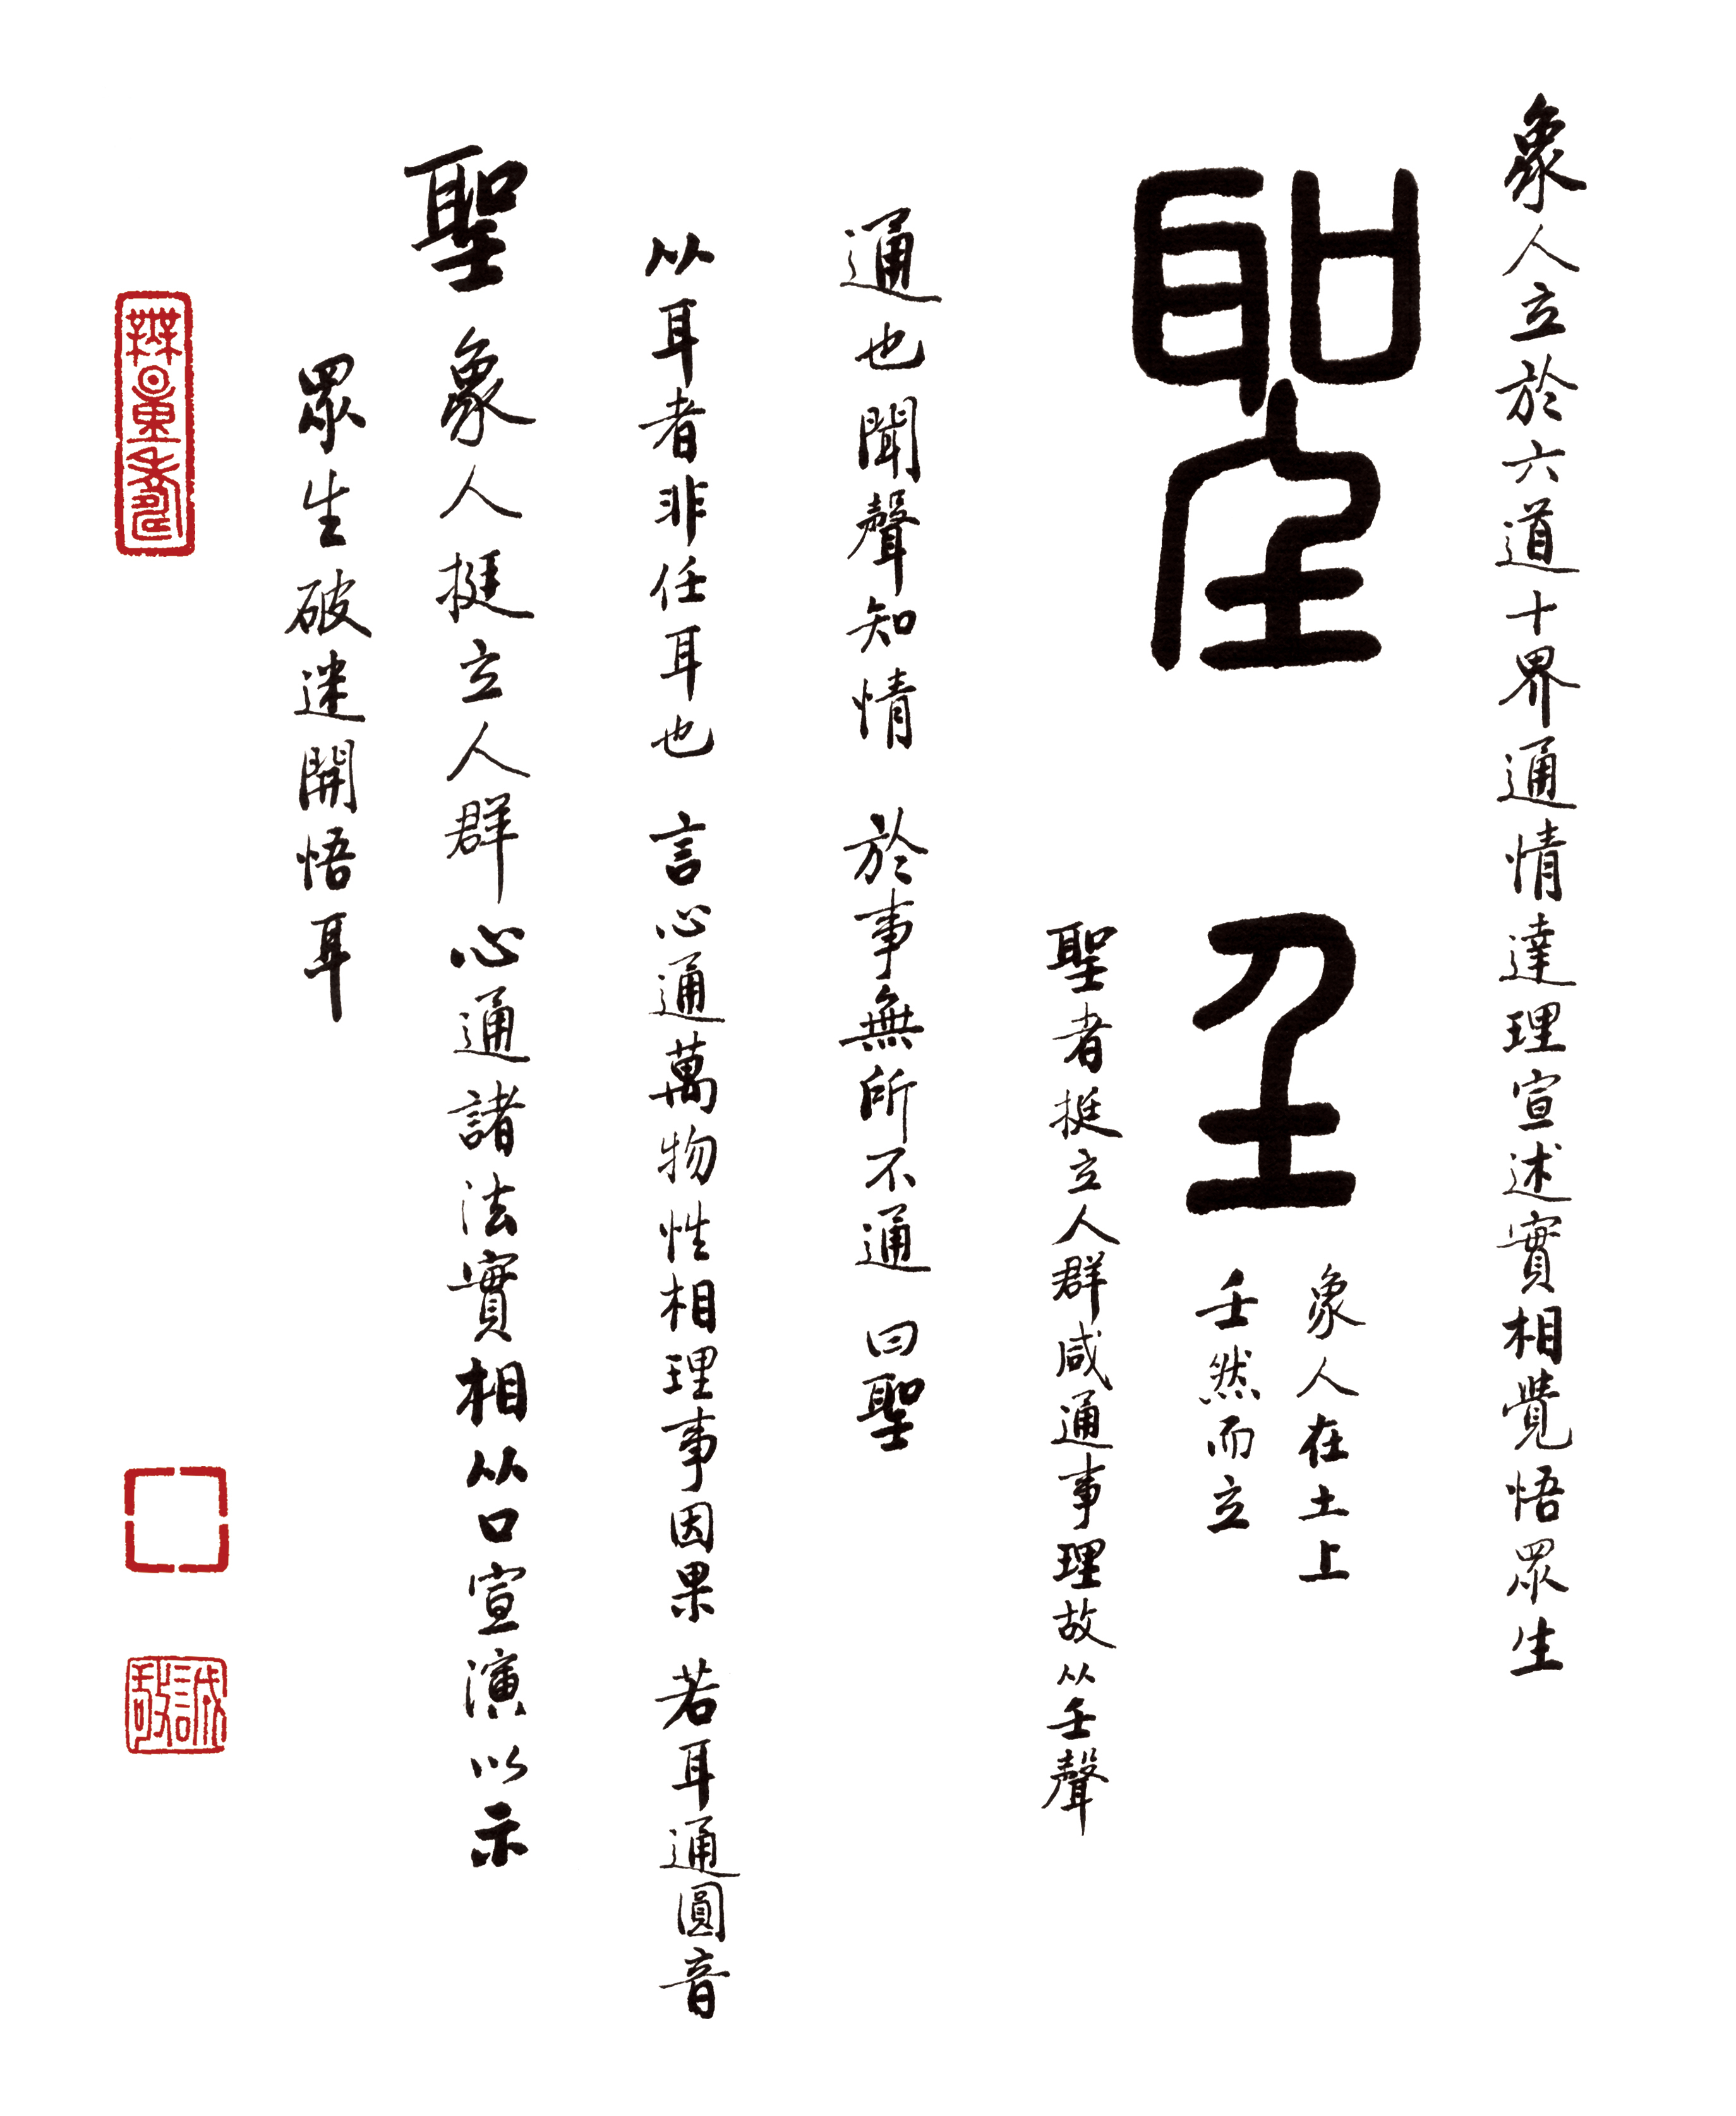 象人立於六道十界通情達理宣述實相覺悟眾生
聖
𡈼
象人在土上
壬然而立
聖者挺立人群咸通事理故从壬聲
通也聞聲知情 於事無所不通 曰聖
以耳者非任耳也 言心通萬物性相理事因果 若耳通圓音
聖象人挺立人群心通諸法實相从口宣演以示
眾生破迷開悟耳
無量壽
誠敬